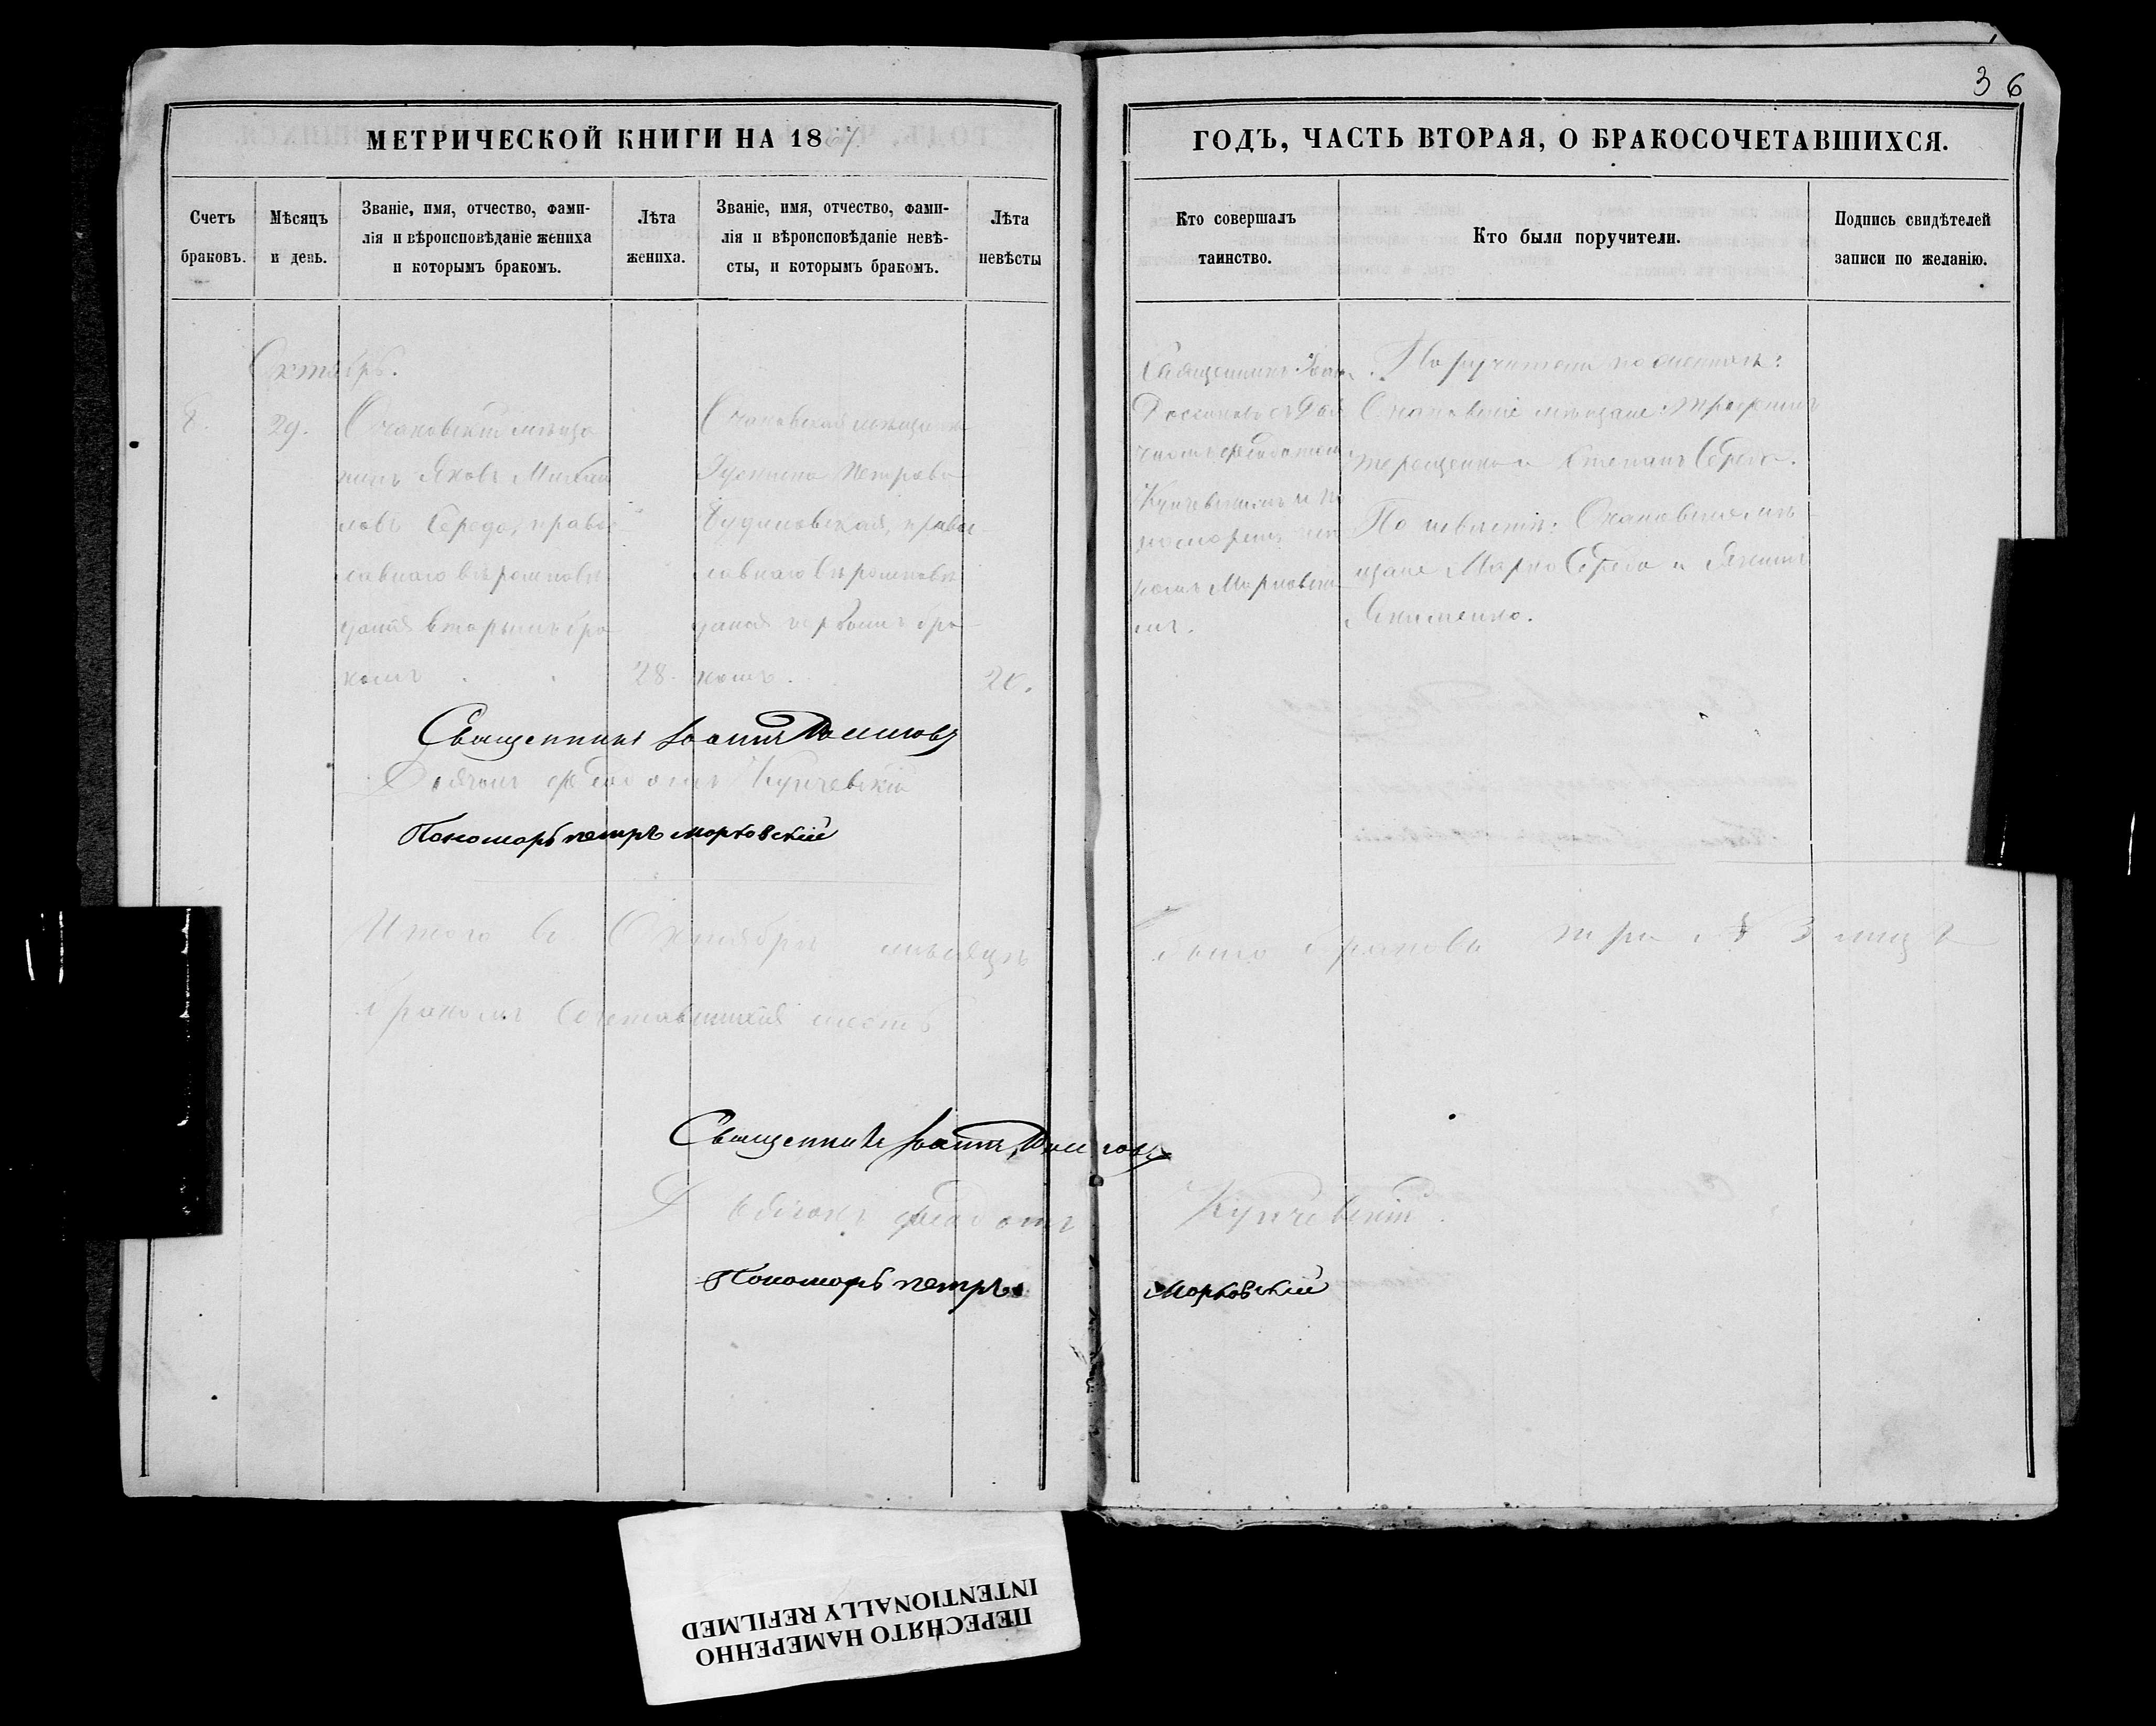 36
МЕТРИЧЕСКОЙ КНИГИ НА 1857
ГОДЪ, ЧАСТЬ ВТОРАЯ, О БРАКОСОЧЕТАВШИХСЯ.
Счетъ
браковъ.
Мѣсяцъ
и день.
Званіе, имя, отчество, фами-
лія и вѣроисповѣданіе жениха
и которымъ бракомъ.
Лѣта
жениха.
Званіе, имя, отчество, фами-
лія и вѣроисповѣданіе невѣ-
сты, и которымъ бракомъ.
Лѣта
невѣсты
Кто совершалъ
таинство.
Кто были поручители.
Подпись свидѣтелей
записи по желанію.
Октябрь.
8.
29.
Очаковскій мѣща
нинъ Яковъ Михай
ловъ Середа, право
славнаго вѣроисповѣ
данія вторымъ бра
комъ
28.
Очаковская мѣщанка
Петрова
православнаго вѣроисповѣ
данія первымъ бра
комъ.
20.
Священникъ Іоан
Федотомъ
Купчевскимъ и по
номаремъ
Марковски
мъ.
Поручители по женихѣ:
Очаковскіе мѣщане: Трофимъ
Терещенко и Степанъ Середа.
По невѣстѣ: Очаковскіе мѣ
щане Марко Середа и
Якименко.
Священникъ Іоаннъ
Дьячокъ Федотъ Купчевскій
Пономарь петръ марковскій
Итого въ Октябрѣ мѣсяцѣ было браковъ три № 3 лицъ
бракомъ сочетавшихся шесть
Священникъ Іоаннъ
Федотъ Купчевскій.
Пономарь петръ Марковскій
ПЕРЕСНЯТО НАМЕРЕННО
INTENTIONALLY REFILMED